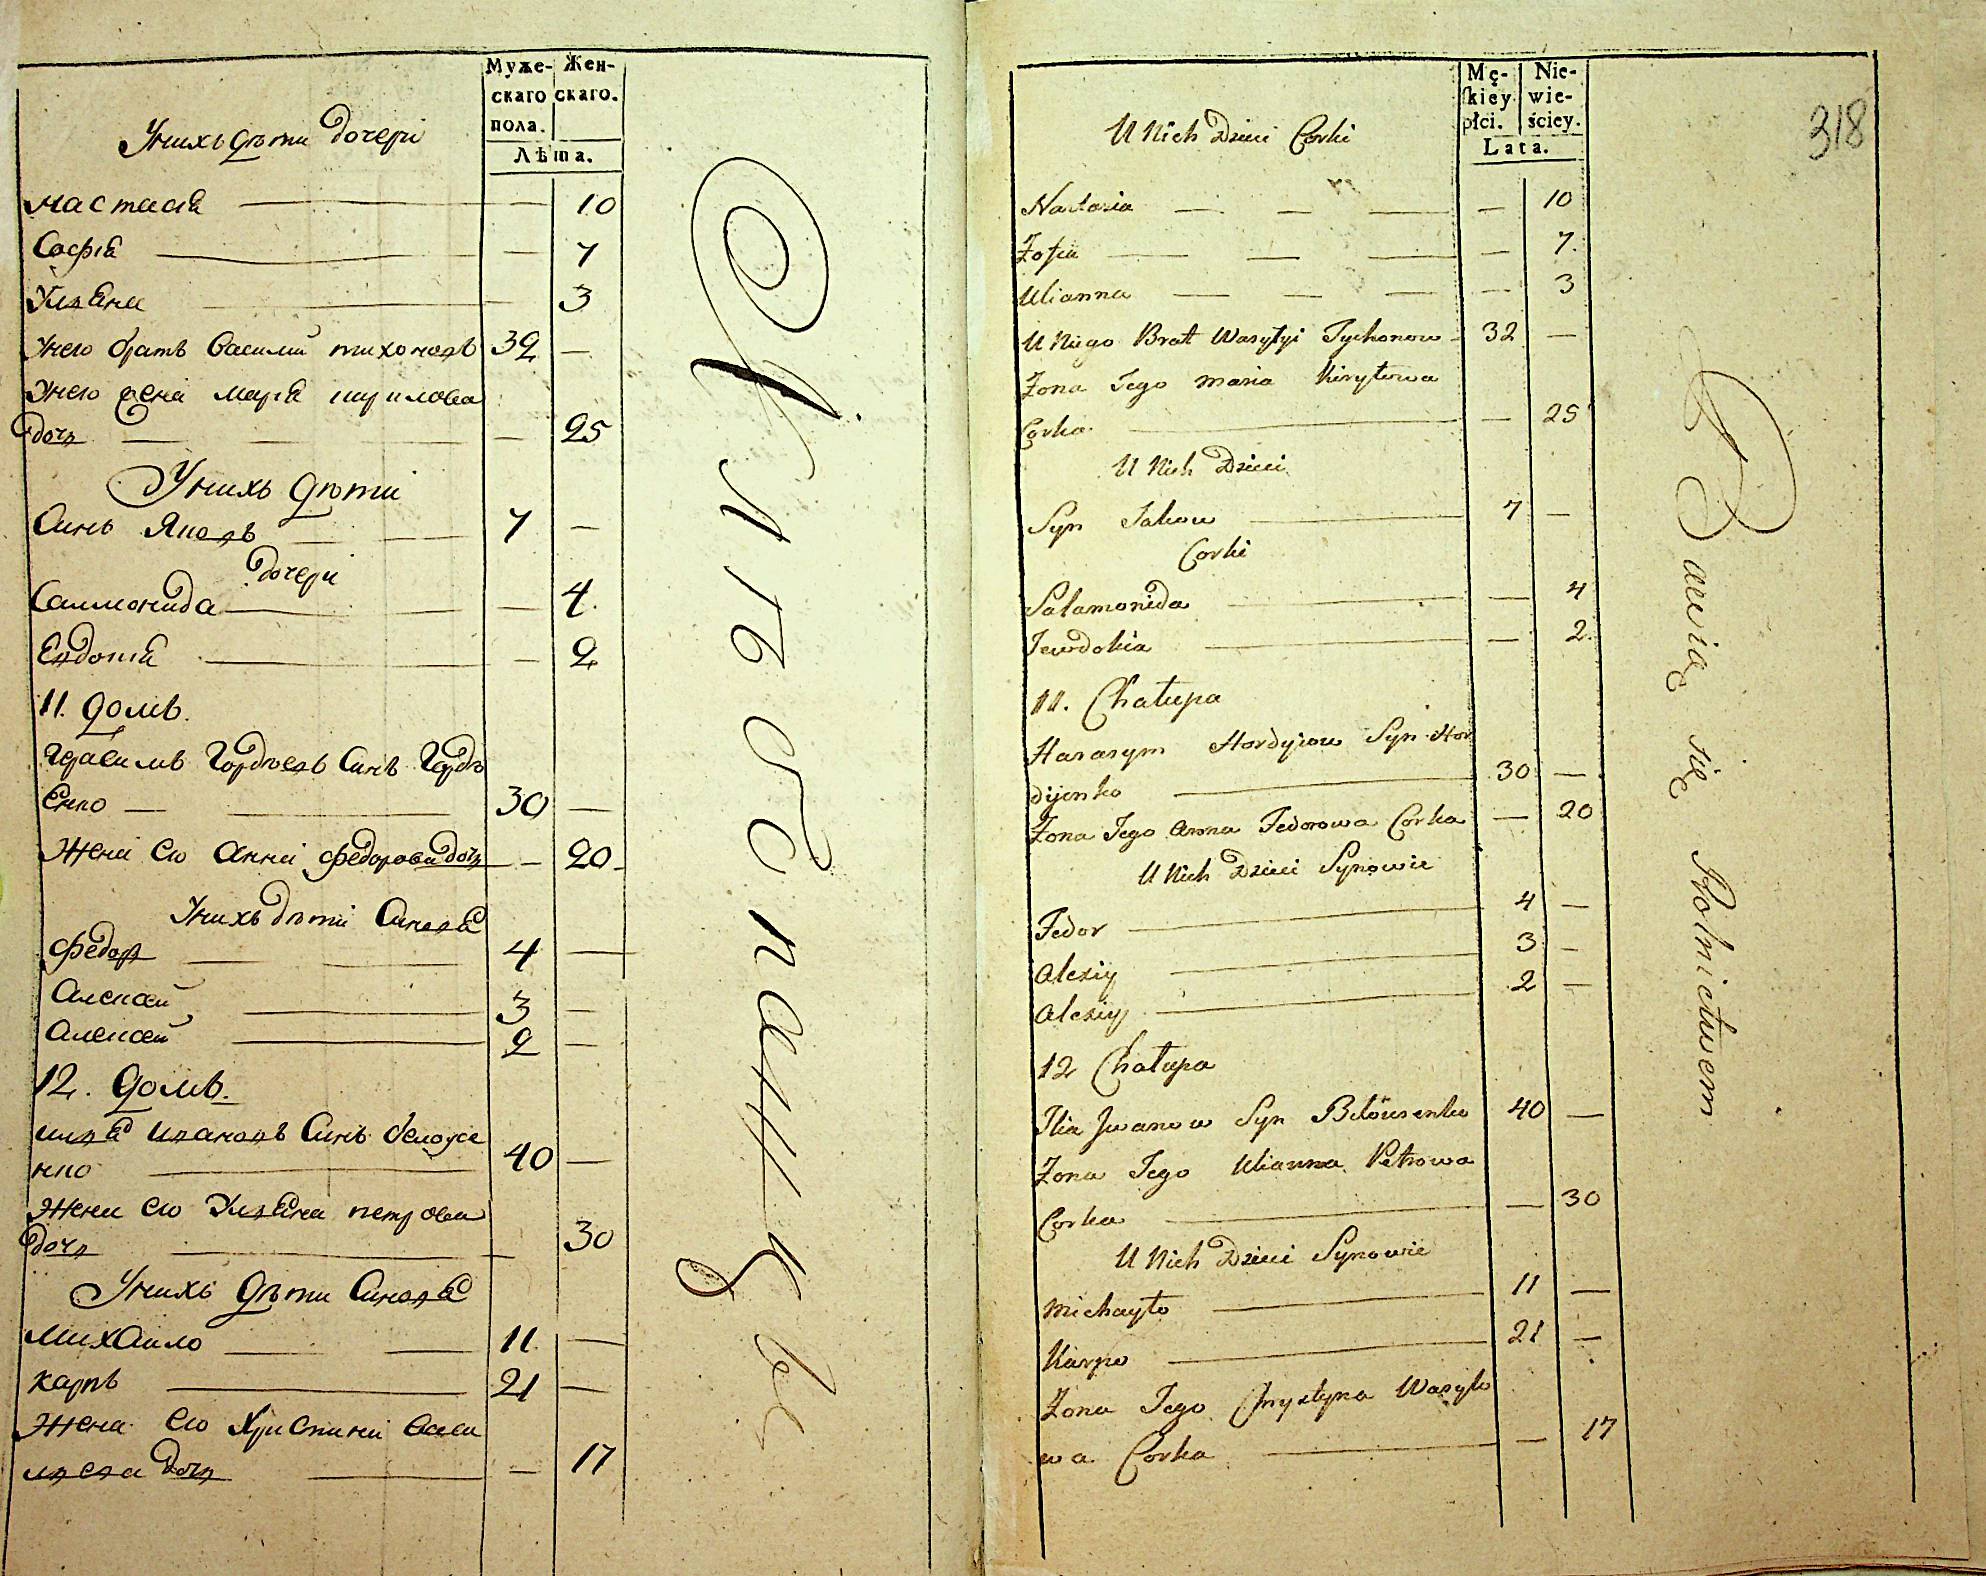 Муже-
скаго
пола.
Жен-
скаго.
Лѣта.
Унихъ дѣти дочери
настасія 10
Софія 7
Уляна 3
Унего братъ Василий тихоновъ 32
Унего жена Марія кирилова
дочь 25
Унихъ дѣти
Синъ Яковъ 7
дочери
Саломонида 4
Евдокія 2
11. домъ.
Герасимъ Гордѣевъ Синъ Гордѣ
Енко 30
Жена его Анна Федорова дочь 20
Унихъ дѣти Синовя
Федор 4
Алексей 3
Алексей 2
12. домъ.
илья ивановъ Синъ белоусе
нко 40
Жена его Уляна петрова
дочь 30
Унихъ дѣти Синовя
Михаило 11
карпъ 21
Жена его Христина васи
лева дочь 17
Mę-
skiey
płci.
Nie-
wie-
ściey.
Lata.
318
U Nich Dzieci Corki
Nastazia 10
Zofia 7
Ulianna 3
U Niego Brat Wasylyi Tychonow 32
Żona Jego Maria Kiryłowa
Corka 25
U Nich Dzieci
Syn Jakow 7
Corki
Salamonida 4
Jewdokia 2
11. Chałupa
Harasym Hordyiow Syn Hor
dijenko 30
Żona Jego Anna Fedorowa Corka 20
U Nich Dzieci Synowie
Fedor 4
Alexiy 3
Alexiy 2
12 Chałupa
Ilia Jwanow Syn Biłousenko 40
Żona Jego Ulianna Petrowa
Corka 30
U Nich Dzieci Synowie
Michayło 11
Karpo 21
Żona Jego Chrystyna Wasyle
wa Corka 17
Bawią się Rolnictwem